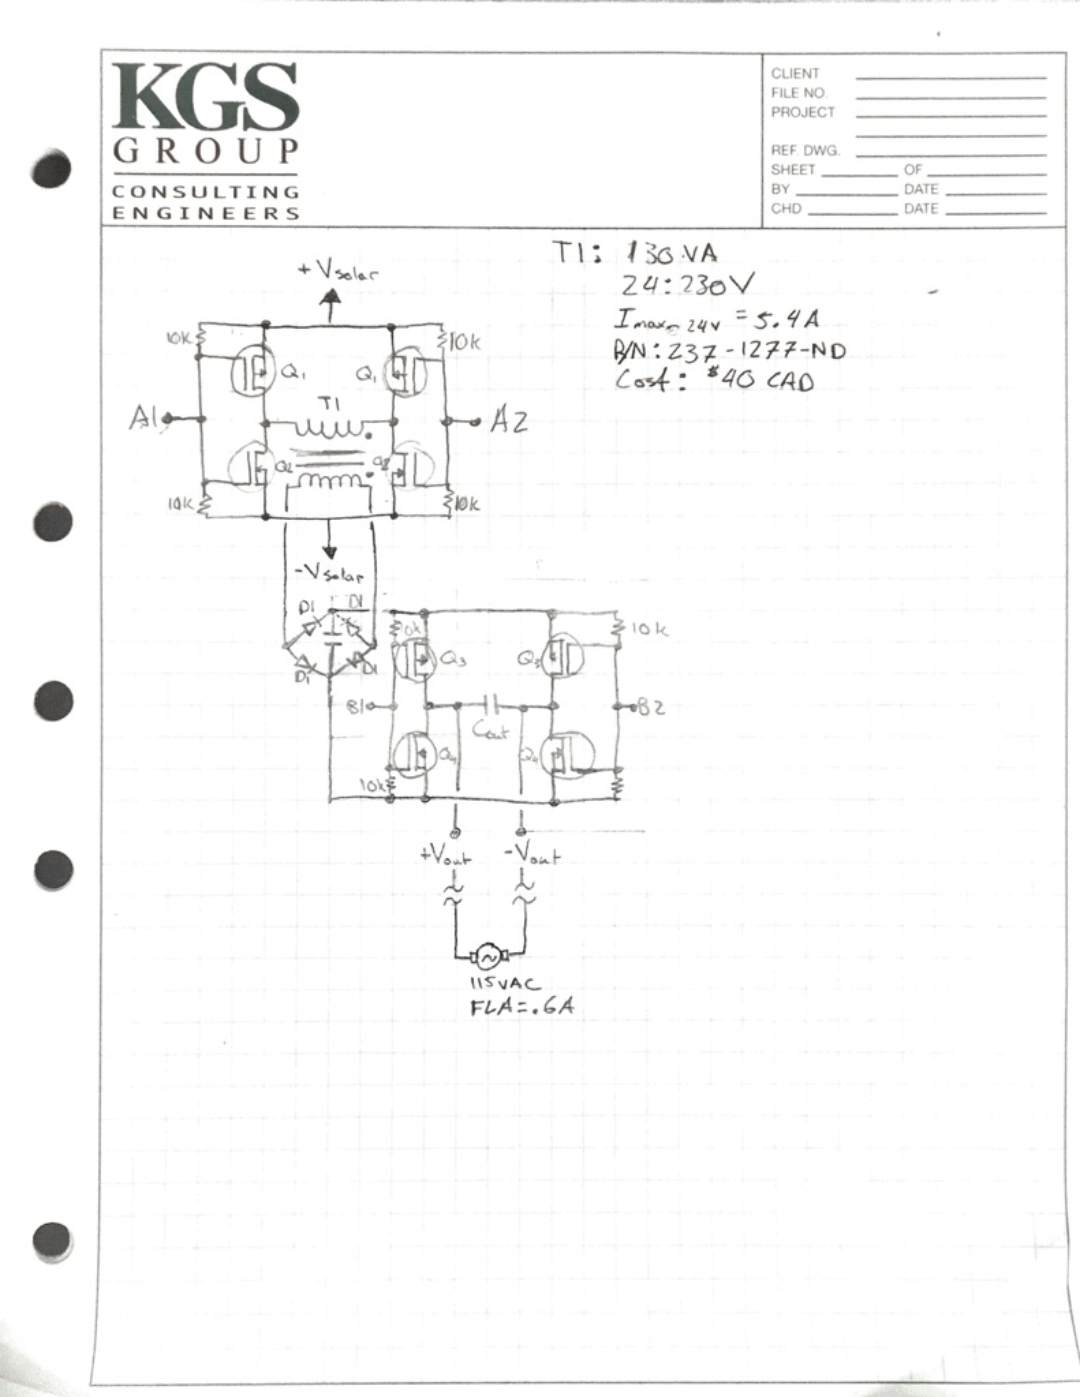 KGS
GROUP
CONSULTING
ENGINEERS
CLIENT
FILE NO.
PROJECT
REF. DWG.
SHEET OF
BY DATE
CHD DATE
T1: 130 VA
24:230V
Imax@24V = 5.4A
P/N: 237-1277-ND
Cost: $40 CAD
+Vsolar
10k 10k
Q1 Q1
T1
A1 A2
Q2 Q2
10k 10k
-Vsolar
D1 D1
10k 10k
Q3 Q3
D1 D1
B1 B2
Cout
Q4 Q4
10k
+Vout -Vout
115VAC
FLA=.6A